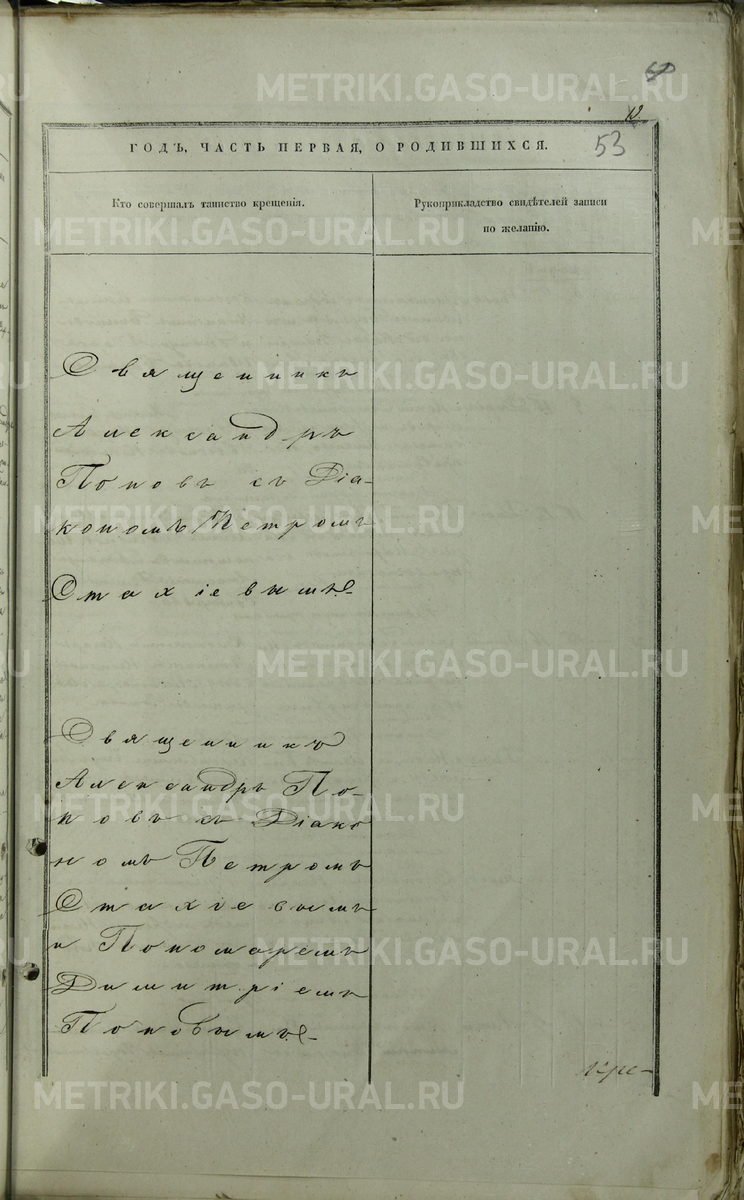 12
ГОДЪ, ЧАСТЬ ПЕРВАЯ, О РОДИВШИХСЯ.
53
Кто совершалъ таинство крещенія.
Рукоприкладство свидѣтелей записи
по желанію.
Священникъ
Александръ
Поповъ съ Діа-
кономъ Петромъ
Стахіевымъ.
Священникъ
Александръ По-
повъ съ Діако
номъ Петромъ
Стахіевымъ
и Пономаремъ
Димитріемъ
Поповымъ.
Кре-
METRIKI.GASO-URAL.RU